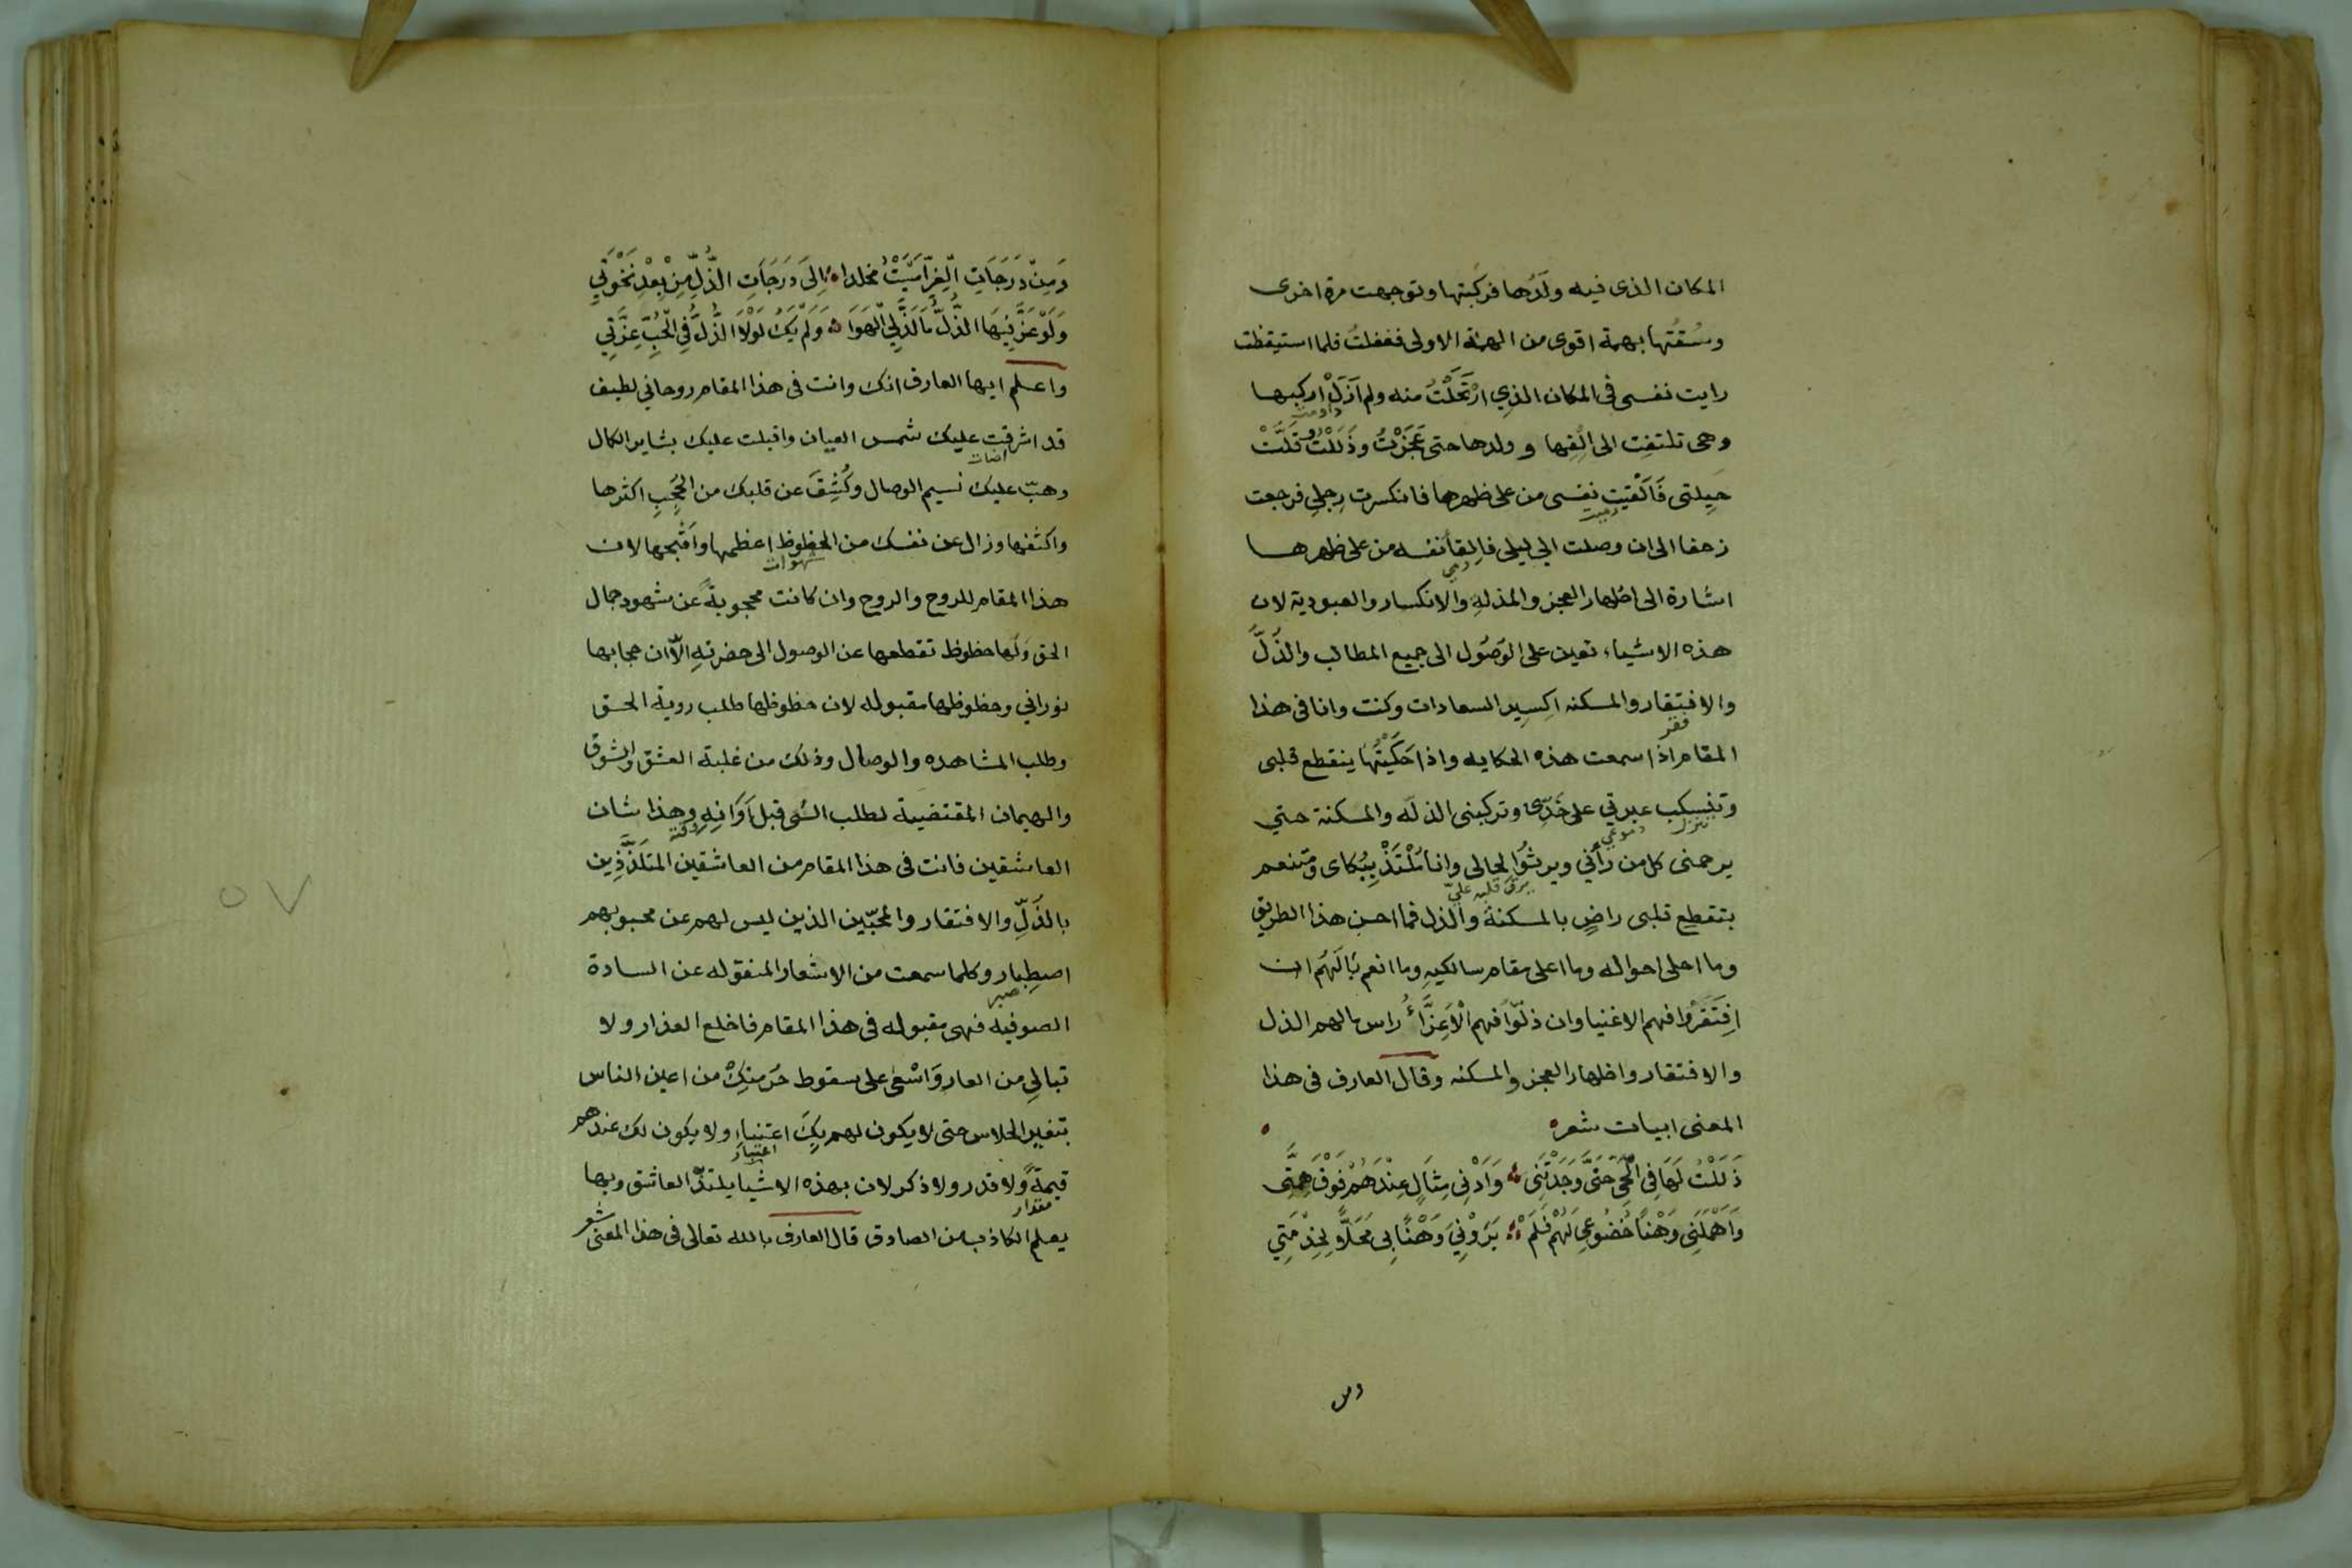 المكان الذى فيه ولدها فركبتها وتوجهت مرة اخرى
وسُقتها بهمة اقوى من الهمة الاولى فغفلتُ فلما استيقظت
رايت نفسى فى المكان الذِي ارْتَحَلْتُ منه ولم اَزَلْ اركبها
وهى تلتفت الى اِلْفِها وولدها حتى عَجَزْتُ وذَلَلْتُ وقَلَّتْ
حِيلتى فَاَلْقَيت نفسى من على ظهرها فانكسرت رِجلِى فرجعت
رميت
زحفا الى ان وصلت الي ليلى فاِلقأ نفسه من على ظهرها
رمي
اشارة الى اظهار العجز والمذلهِ والانكسار والعبودية لان
هذه الاشياء تعين على الوَصُول الى جميع المطالب والذَلَّ
والافتقار والمسكنه اكسِير السعادات وكنت وانا فى هذا
فقر
المقام اذا سمعت هذه الحكايه واذا حَكَيْتُهَا ينقطع قلبى
وتنسكب عبرتي على خَدِّى وتركبنى الذلّه والمسكنة حتي
تنزل دموعي
يرحمنى كل من رأني ويرثُوا لحالى وانا مُلْتَذّ بِبُكاى ومتنعم
يرق قلبه عليّ
بتقطع قلبى راضٍ بالمسكنة والذل فما احسن هذا الطريق
وما احلى احواله وما اعلى مقام سالكيهِ وما انعم بَالَهُم ان
اِفتَقَرْوا فهم الاغنيا وان ذلّوا فهم الْاَعِزَّاءُ راس مالهم الذل
والافتقار واظهار العجز والمسكنه وقال العارف فى هذا
المعنى ابيات شعر
ذَلَلْتُ لَهَا فِى الْحَىِّ حَتَّى وَجَدْتَنِى وَاَدْنٰى مِثَالٍ عِنْدَهُمْ فَوْقَ هِمَّتِى
وَاَخْمَلَنِى وَهْنًا خُضُوعِى لَهُمْ فَلَمْ يَرَوْنِىَ وَهْنًا بِى مَحَلًّا لِخِدْمَتِي
ومن
وَمِنْ دَرَجَاتِ الْعِزِّ اَمْسَيْتُ مخلدا اِلَى دَرَجَاتِ الذُّلِّ مِنْ بَعْدِ نَخْوَتِي
وَلَوْ عَزَّ فِيهَا الذُّلُّ مَا لَذَّ لِي الْهَوَا وَلَمْ يَكُ لَوْلَا الذُّلُّ فِي الْحُبِّ عِزَّتِي
واعلم ايها العارف انك وانت فى هذا المقام روحاني لطيف
قد اشرقت عليك شمس العيان واقبلت عليك بشاير الكمال
اضات
وهبّ عليك نسيم الوصال وكُشِفَ عن قلبك من الحُجُبِ اكثرها
واكثفها وزال عن نفسك من الحظوظ اعظمها واَقْبحها لان
شهوات
هذا المقام للروح والروح وان كانت محجوبةً عن مشهود جمال
الحق ولَها حظوظ تقطعها عن الوصول الى حضرتهِ اِلّا ان حجابها
نوراني وحظوظها مقبوله لان حظوظها طلب روية الحق
وطلب المشاهده والوصال وذلك من غلبة العشق والشوق
والهيمان المقتضية لطلب الشى قبل اَوَانِهِ وهذا شان
وقته
العاشقين فانت فى هذا المقام من العاشقين المتَلَذِّذِين
بالذُلِّ والافتقار والمحبّين الذين ليس لهم عن محبوبهم
اصطِبار وكلما سمعت من الاشعار المنقوله عن السادة
صبر
الصوفيه فهى مقبوله فى هذا المقام فاخلع العذار ولا
تبالِى من العار وَاسْعَ على سقوط حُرمتِكْ من اعين الناس
بتغيير الجلاس حتى لا يكون لهم بِكَ اعتِناءِ ولا يكون لك عندهم
اعتبار
قيمةً ولا قدر ولا ذكر لان بهذه الاشيا يلتذّ العاشق وبها
مقدار
يعلم الكاذب من الصادق قال العارف بالله تعالى فى هذا المعنى شعر
٥٧